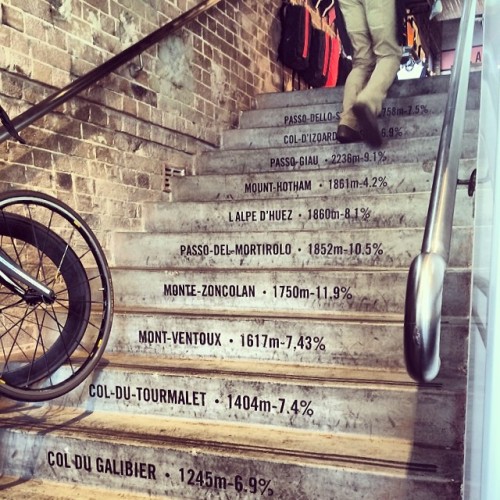 PASSO-DELLO-S 758m-7.5%
COL-D'IZOARD 6.9%
PASSO-GIAU • 2236m-9.1%
MOUNT-HOTHAM • 1861m-4.2%
L'ALPE D'HUEZ • 1860m-8.1%
PASSO-DEL-MORTIROLO • 1852m-10.5%
MONTE-ZONCOLAN • 1750m-11.9%
MONT-VENTOUX • 1617m-7.43%
COL-DU-TOURMALET • 1404m-7.4%
COL DU GALIBIER • 1245m-6.9%